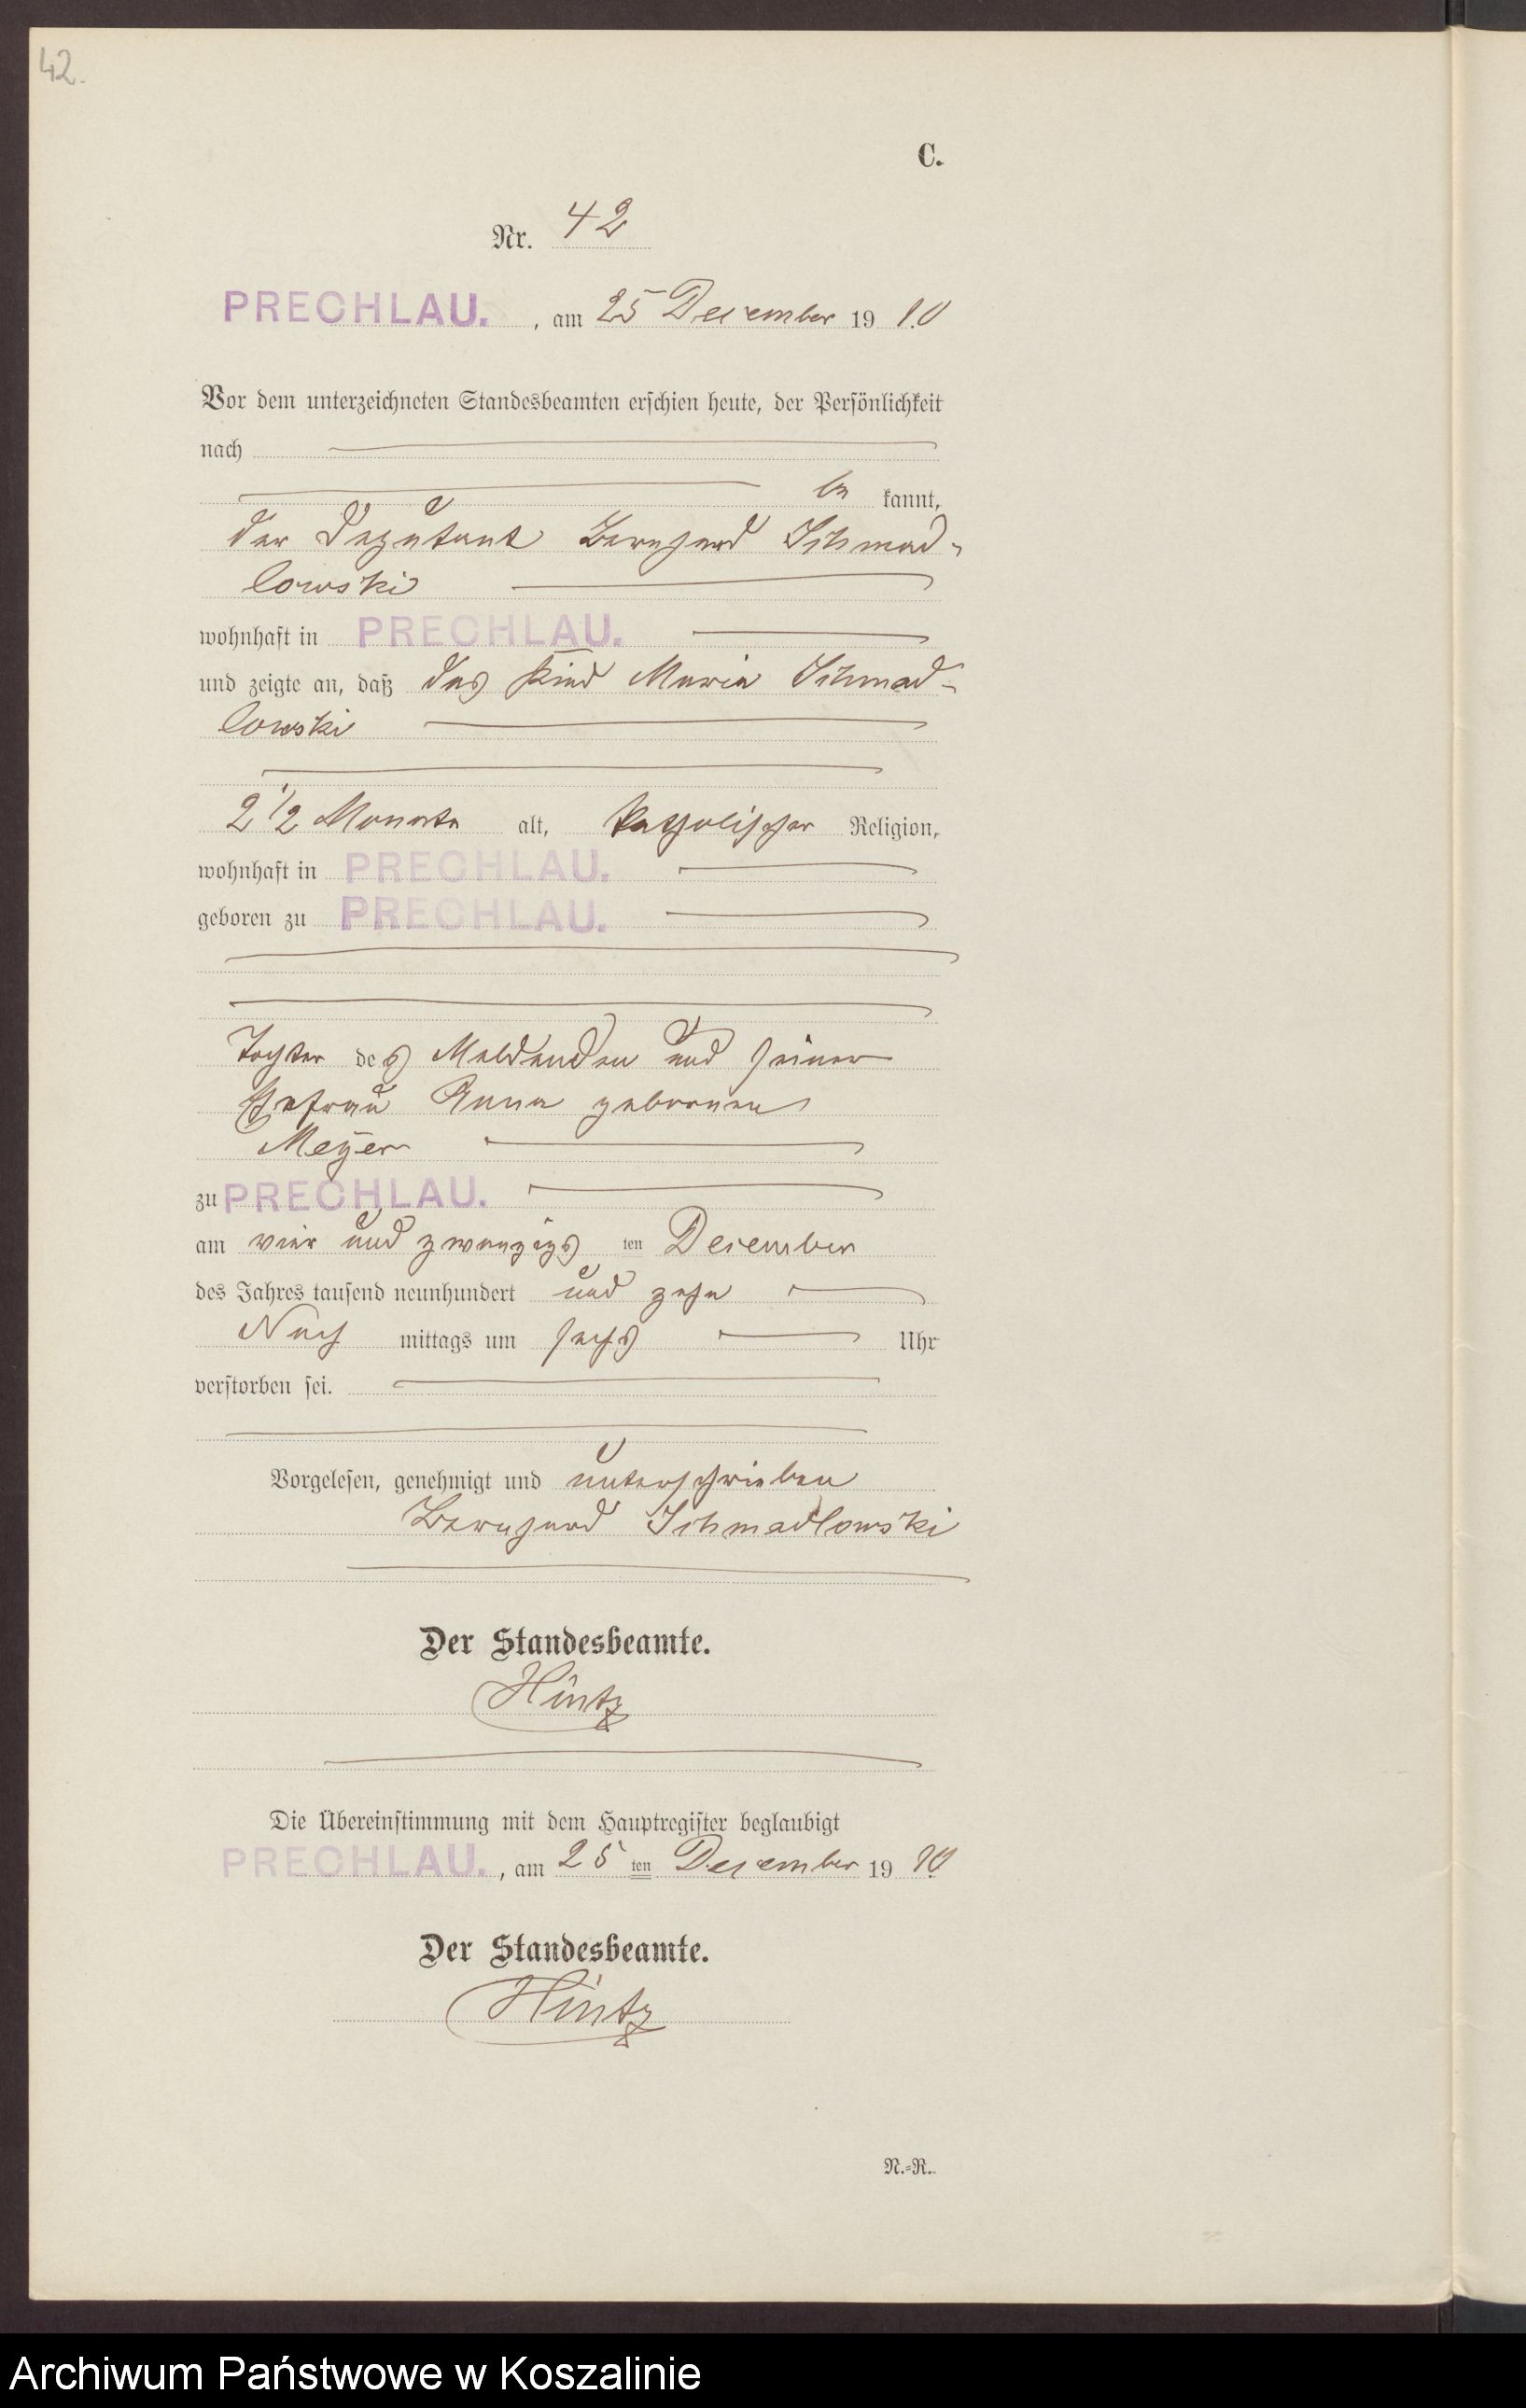 42.
C.
Nr. 42
PRECHLAU. , am 25 Dezember 19 10
Vor dem unterzeichneten Standesbeamten erschien heute, der Persönlichkeit
nach
be kannt,
der Deputant Bernhard Schmad-
lowski
wohnhaft in PRECHLAU.
und zeigte an, daß das Kind Maria Schmad-
lowski
2 1/2 Monate alt, katholischer Religion,
wohnhaft in PRECHLAU.
geboren zu PRECHLAU.
Tochter des Meldenden und seiner
Ehefrau Anna geborenen
Meyer
zu PRECHLAU.
am vier und zwanzigs ten Dezember
des Jahres tausend neunhundert und zehn
Nach mittags um sechs Uhr
verstorben sei.
Vorgelesen, genehmigt und unterschrieben
Bernhard Schmadlowski
Der Standesbeamte.
Hintz
Die Übereinstimmung mit dem Hauptregister beglaubigt
PRECHLAU. , am 25 ten Dezember 19 10
Der Standesbeamte.
Hintz
N.=R.
Archiwum Państwowe w Koszalinie